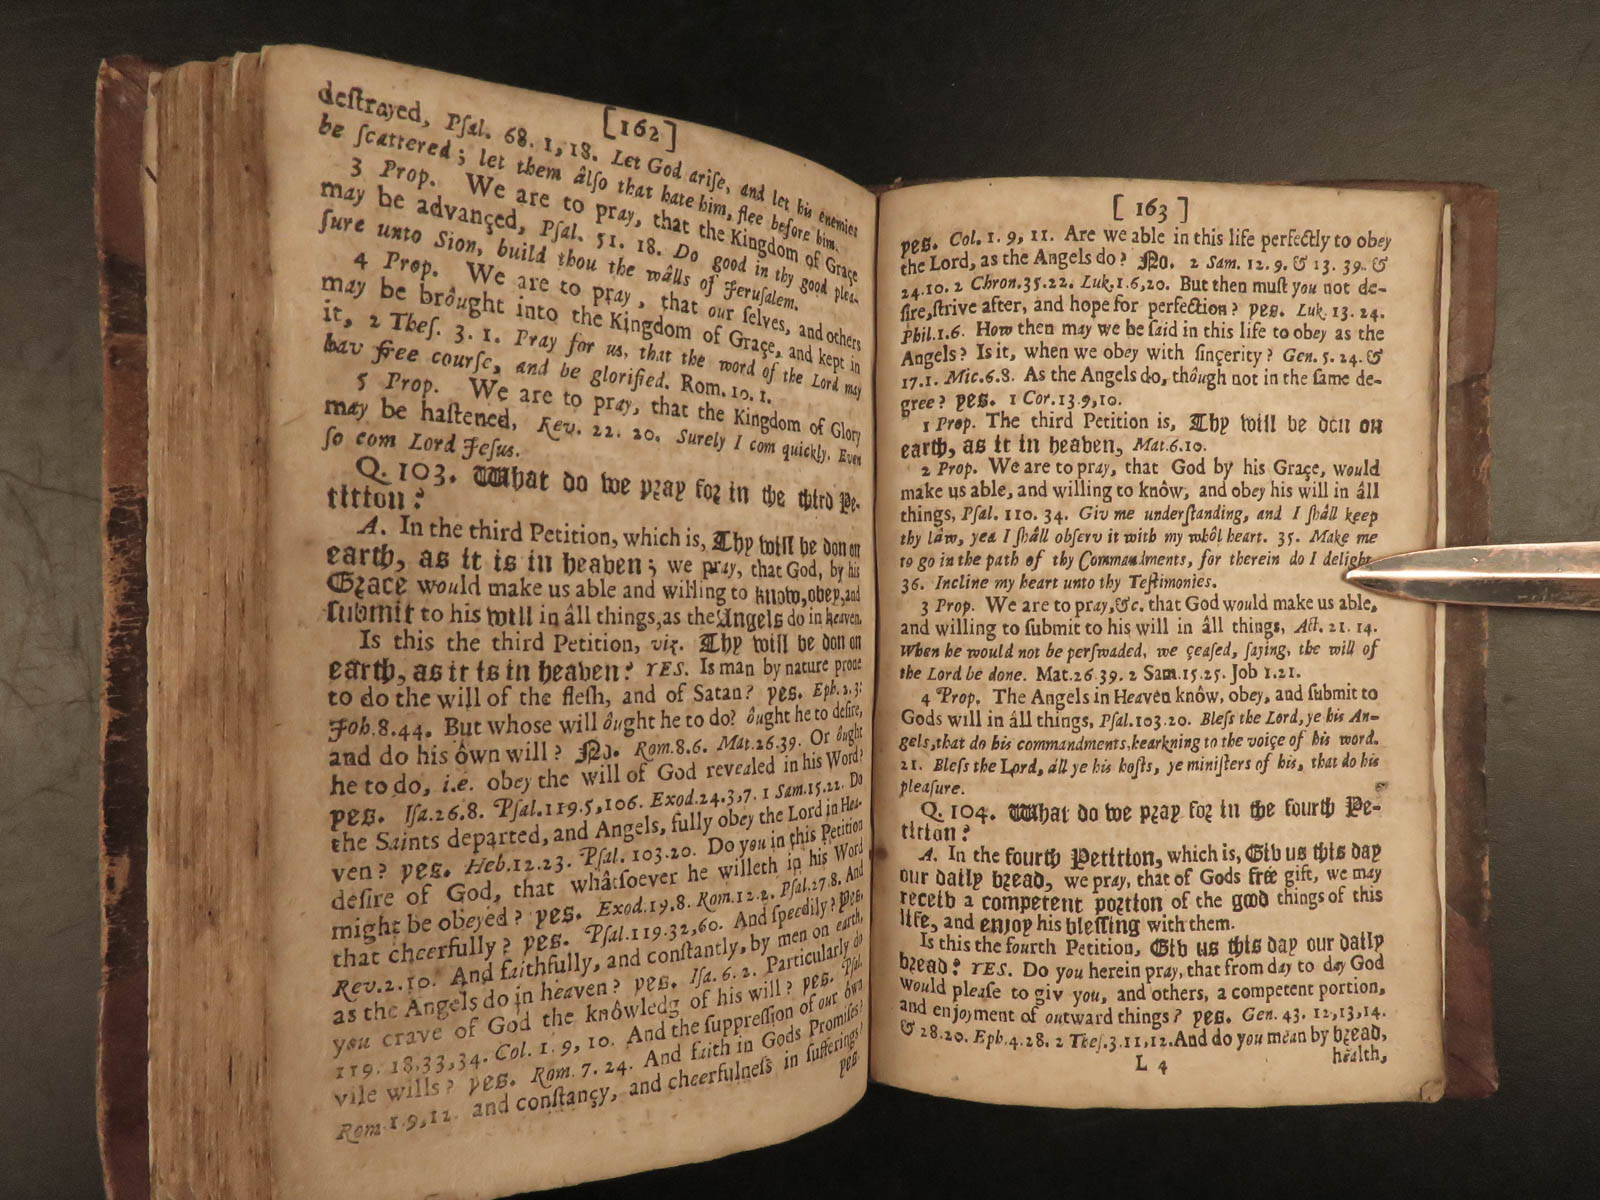 [162]
destrayed, Psal. 68. 1, 18. Let God arise, and let his enemies
be scattered; let them âlso that hate him, flee before him.
3 Prop. We are to pray, that the Kingdom of Graçe
may be advançed, Psal. 51. 18. Do good in thy good plea-
sure unto Sion, build thou the wâlls of Jerusalem.
4 Prop. We are to pray, that our selves, and others
may be brôught into the Kingdom of Graçe, and kept in
it, 2 Thes. 3. 1. Pray for us, that the word of the Lord may
hav free course, and be glorified. Rom. 10. 1.
5 Prop. We are to pray, that the Kingdom of Glory
may be hastened, Rev. 22. 20. Surely I com quickly. Even
so com Lord Jesus.
Q. 103. What do we pray for in the third Pe-
tition?
A. In the third Petition, which is, Thy will be don on
earth, as it is in heaven; we pray, that God, by his
Grace would make us able and willing to know, obey, and
submit to his will in âll things, as the Angels do in heaven.
Is this the third Petition, viz. Thy will be don on
earth, as it is in heaven? YES. Is man by nature prone
to do the will of the flesh, and of Satan? yes. Eph. 2. 3.
Joh. 8. 44. But whose will ôught he to do? ôught he to desire,
and do his ôwn will? No. Rom. 8. 6. Mat. 26. 39. Or ôught
he to do, i.e. obey the will of God revealed in his Word?
yes. Isa. 26. 8. Psal. 119. 5, 106. Exod. 24. 3, 7. 1 Sam. 15. 22. Do
the Saints departed, and Angels, fully obey the Lord in Hea-
ven? yes. Heb. 12. 23. Psal. 103. 20. Do you in this Petition
desire of God, that whâtsoever he willeth in his Word
might be obeyed? yes. Exod. 19. 8. Rom. 12. 2. Psal. 27. 8. And
that cheerfully? yes. Psal. 119. 32, 60. And speedily? yes.
Rev. 2. 10. And faithfully, and constantly, by men on earth,
as the Angels do in heaven? yes. Isa. 6. 2. Particularly do
you crave of God the knôwledg of his will? yes. Psal.
119. 18. 33, 34. Col. 1. 9, 10. And the suppression of our ôwn
vile wills? yes. Rom. 7. 24. And faith in Gods Promises?
Rom. 1. 9, 12. and constançy, and cheerfulness in sufferings?
yes.
[163]
yes. Col. 1. 9, 11. Are we able in this life perfectly to obey
the Lord, as the Angels do? No. 2 Sam. 12. 9. & 13. 39. &
24. 10. 2 Chron. 35. 22. Luk. 1. 6, 20. But then must you not de-
sire, strive after, and hope for perfection? yes. Luk. 13. 24.
Phil. 1. 6. How then may we be said in this life to obey as the
Angels? Is it, when we obey with sinçerity? Gen. 5. 24. &
17. 1. Mic. 6. 8. As the Angels do, thôugh not in the same de-
gree? yes. 1 Cor. 13. 9, 10.
1 Prop. The third Petition is, Thy will be don on
earth, as it in heaven, Mat. 6. 10.
2 Prop. We are to pray, that God by his Graçe, would
make us able, and willing to knôw, and obey his will in âll
things, Psal. 110. 34. Giv me understanding, and I shâll keep
thy lâw, yea I shâll observ it with my whôl heart. 35. Make me
to go in the path of thy Commandments, for therein do I delight.
36. Incline my heart unto thy Testimonies.
3 Prop. We are to pray, &c. that God would make us able,
and willing to submit to his will in âll things, Act. 21. 14.
When he would not be perswaded, we çeased, saying, the will of
the Lord be done. Mat. 26. 39. 2 Sam. 15. 25. Job 1. 21.
4 Prop. The Angels in Heaven knôw, obey, and submit to
Gods will in âll things, Psal. 103. 20. Bless the Lord, ye his An-
gels, that do his commandments, hearkning to the voiçe of his word.
21. Bless the Lord, âll ye his hosts, ye ministers of his, that do his
pleasure.
Q. 104. What do we pray for in the fourth Pe-
tition?
A. In the fourth Petition, which is, Giv us this day
our daily bread, we pray, that of Gods free gift, we may
receiv a competent portion of the good things of this
life, and enjoy his blessing with them.
Is this the fourth Petition, Giv us this day our daily
bread? YES. Do you herein pray, that from day to day God
would please to giv you, and others, a competent portion,
and enjoyment of outward things? yes. Gen. 43. 12, 13, 14.
& 28. 20. Eph. 4. 28. 2 Thes. 3. 11, 12. And do you mean by bread,
L 4 health,